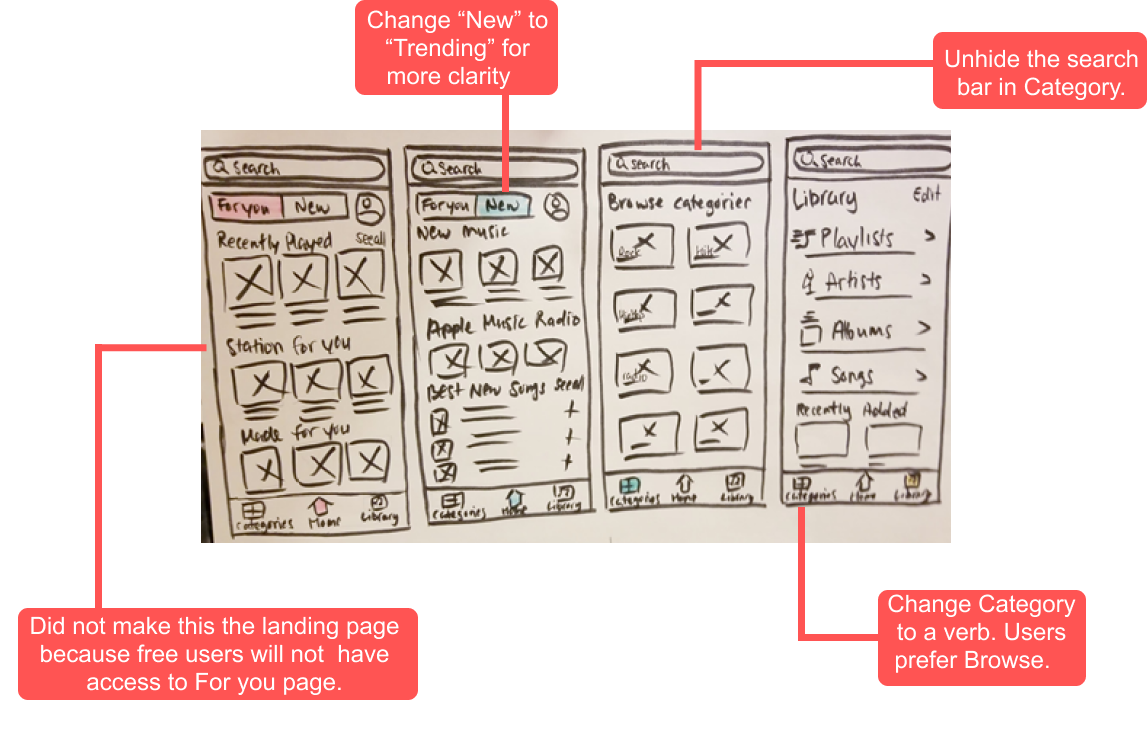 Change “New” to
“Trending” for
more clarity
Unhide the search
bar in Category.
Search
For you
New
Recently Played
see all
Station for you
Made for you
Categories
Home
Library
Search
For you
New
New music
Apple Music Radio
Best New Songs
see all
Categories
Home
Library
Search
Browse categories
Rock
radio
Categories
Home
Library
Search
Library
Edit
Playlists
Artists
Albums
Songs
Recently Added
Categories
Home
Library
Did not make this the landing page
because free users will not have
access to For you page.
Change Category
to a verb. Users
prefer Browse.